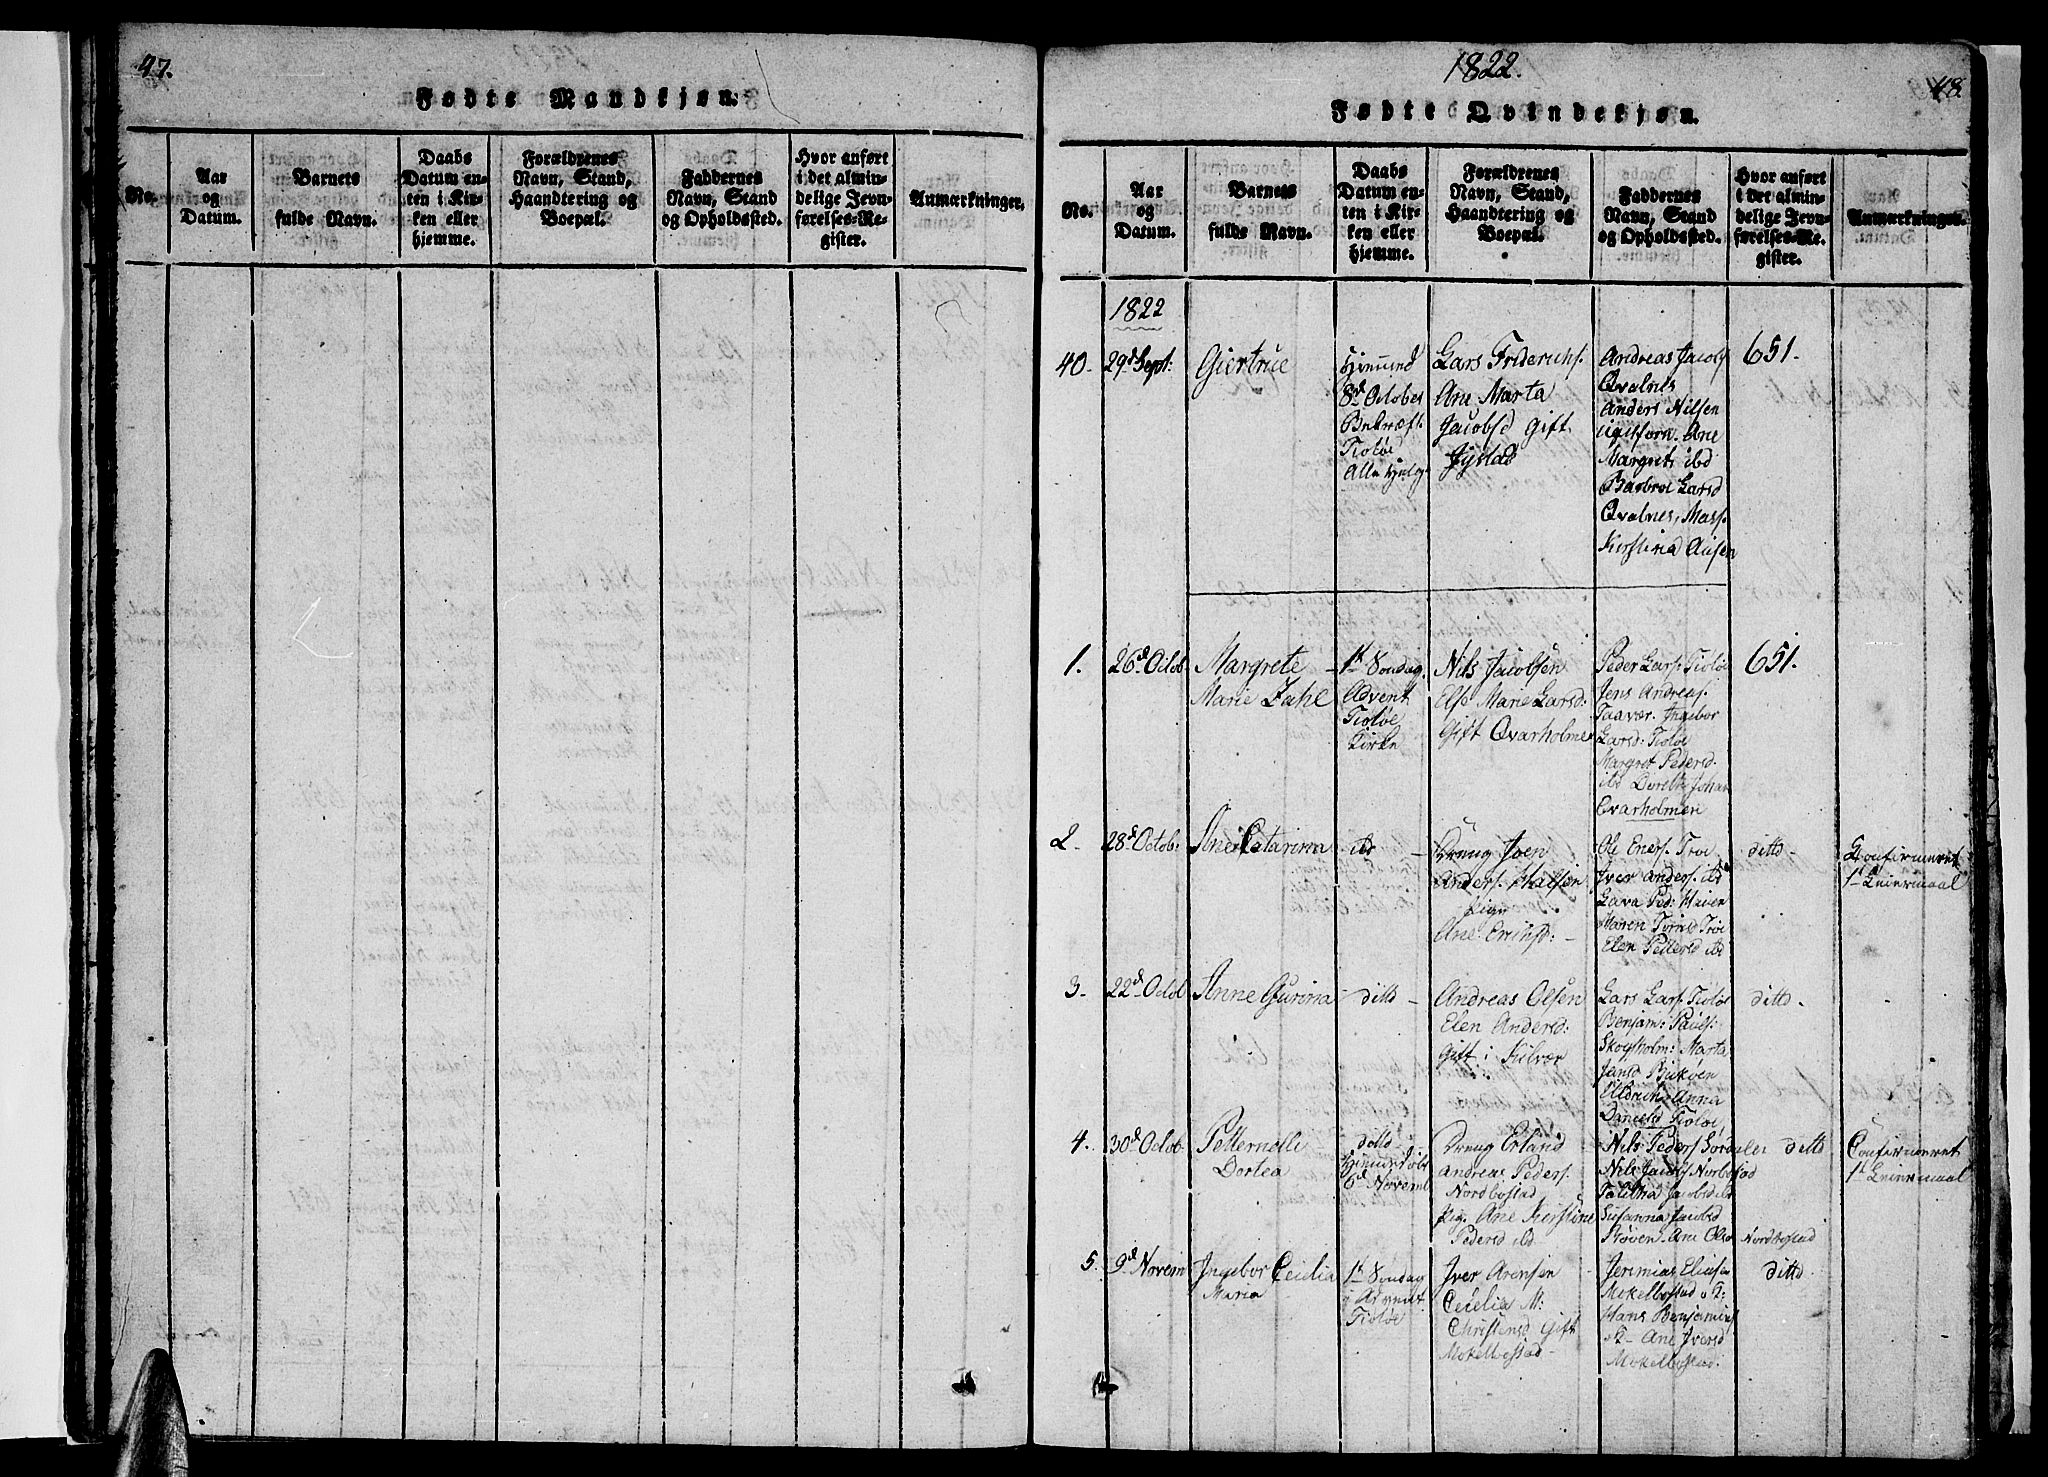 47.
Fødte Mandkjøn.
No.
Aar
og
Datum.
Barnets
fulde Navn.
Daabs
Datum en-
ten i Kir-
ken eller
hjemme.
Forældrenes
Navn, Stand,
Haandtering og
Boepæl.
Faddernes
Navn, Stand
og Opholdssted.
Hvor anført
i det almin-
delige Jevn-
førelses-Re-
gister.
Anmærkninger.
1822.
48.
Fødte Qvindekjøn.
No.
Aar
og
Datum.
Barnets
fulde Navn.
Daabs
Datum en-
ten i Kir-
ken eller
hjemme.
Forældrenes
Navn, Stand,
Haandtering og
Boepæl.
Faddernes
Navn, Stand
og Opholdssted.
Hvor anført
i det almin-
delige Jevn-
førelses-Re-
gister.
Anmærkninger.
1822
40.
29d Sept:
Giertrue
8d October
Bekræft.
Tioløe
Alle Helg.
Lars Friderichs.
Ane Marta
Jacobsd Gift
Andreas Jacobs.
Qvalnes
Anders Nilsen
Ane
Margrete ibd
Barbroe Larsd
Qvalnes, Mass.
Kirstina
651.
1.
26d Octob
Margrete
Marie Zahl
1te Søndag
Advent
Tioløe
Kirke
Nils Jacobsen
Else Marie Larsd:
Gift Qvarholmen
Peder Lars. Tioløe
Jens Andreas.
Taavær. Ingebor
Larsd: Tioløe
Margret Pedersd.
ibd Dorethe Johan
Qvarholmen
651.
2.
28d Octob:
Ane Catarina
ibd
Dreng Joen
Anders.
Pige
Ane Erichsd:
Ole Eners. Troe
Iver Anders. ibd
Lava Ped:
Maren Torrisd Troe
Elen Pettersd ibd
ditto
Confirmeret
1te Leiermaal
3.
22d Octob
Anne Gurina
ditto
Andreas Olsen
Elen Andersd:
Gift i Kilvær
Lars Lars. Tioløe
Benjam: Pauls:
Skogsholm: Marta
Jensd Buköen
Anna
Danielsd Tioløe
ditto.
4.
30d Octob
Petternelle
Dortea
ditto
6d Novemb
Dreng Erland
Andreas Peders.
Nordbostad
Pig. Ane Kirstine
Pedersd ibd
Nils Peders
Nels Jacobs Norbostad
Talitha Jacobsd ibd
Susanna Jacobsd
Støven. Ane Olsd Nordbostad
ditto
Confirmeret
1te Leiermaal
5.
9d Novem
Ingebor Cecilia
Maria
1te Søndag
i Advent.
Tioløe
Iver Arensen
Cecilia M:
Christensd Gift
Mokelbostad
Jerimias Eliasen
Mokelbostad
Hans Benjamins
Ane Iversd
Mokelbostad.
ditto